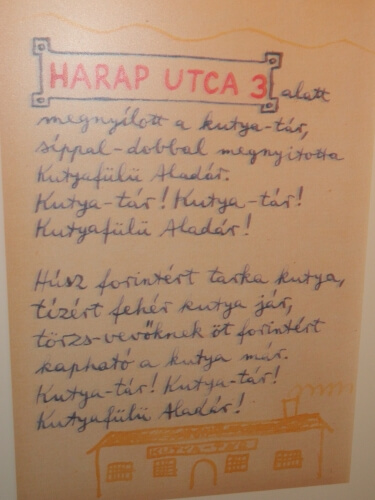 HARAP UTCA 3 alatt
megnyílott a kutya-tár,
síppal-dobbal megnyitotta
Kutyafülü Aladár.
Kutya-tár! Kutya-tár!
Kutyafülü Aladár!
Húsz forintért tarka kutya,
tízért fehér kutya jár,
törzs-vevőknek öt forintért
kapható a kutya már.
Kutya-tár! Kutya-tár!
Kutyafülü Aladár!
KUTYA-TÁR